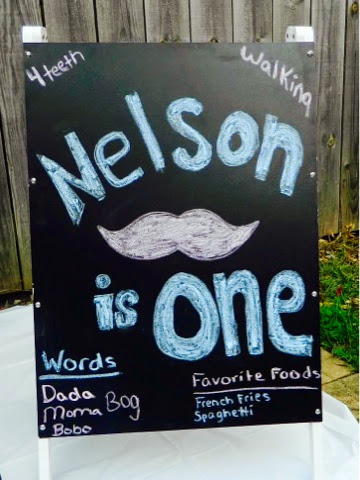 4 teeth
Walking
Nelson
is one
Words
Dada
Moma Bog
Bobo
Favorite Foods
French Fries
Spaghetti